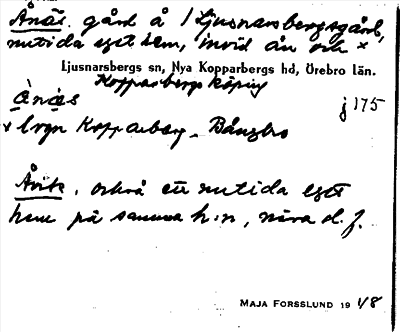 Ånäs. gård å 1 Ljusnarsbergsgård,
nutida eget hem, invid ån och x
Ljusnarsbergs sn, Nya Kopparbergs hd, Örebro län.
Kopparbergs köping
ånäs j 175
x lvgn Kopparberg - Bångbro
Åvik, också ett nutida eget
hem på samma h:n, nära d. f.
MAJA FORSSLUND 19 48